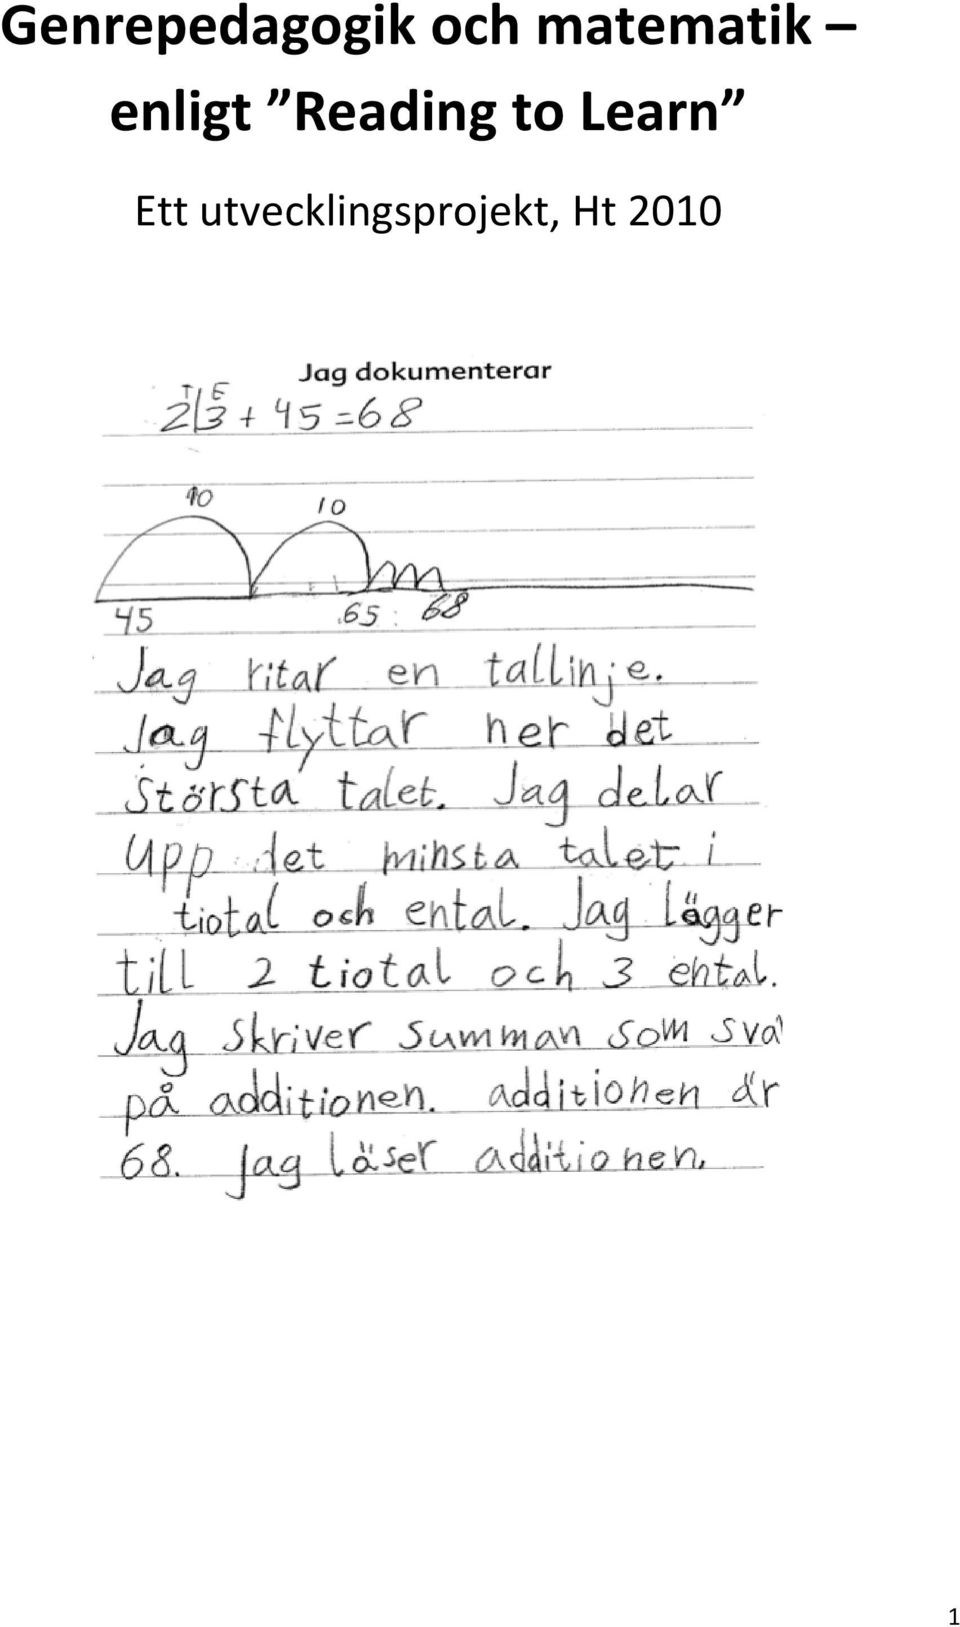 Genrepedagogik och matematik –
enligt ”Reading to Learn”
Ett utvecklingsprojekt, Ht 2010
Jag dokumenterar
T E
2|3 + 45 = 68
10 10
45 65 68
Jag ritar en tallinje.
Jag flyttar ner det
största talet. Jag delar
upp det minsta talet i
tiotal och ental. Jag lägger
till 2 tiotal och 3 ental.
Jag skriver summan som sva
på additionen. additionen är
68. Jag läser additionen.
1